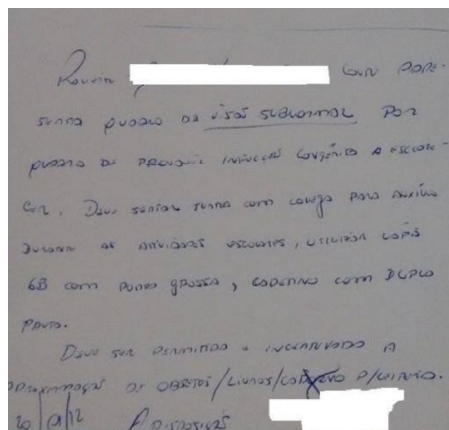 apre-
senta quadro de visão subnormal por
quadro de provável infecção congênita a esclare-
cer. Deve sentar junto com colega para auxílio
durante as atividades escolares, utilizar lápis
6B com ponta grossa, caderno com duplo
pauta.
Deve ser permitida e incentivado a
aproximação de objetos/livros/caderno p/leitura.
20/9/12 A disposição